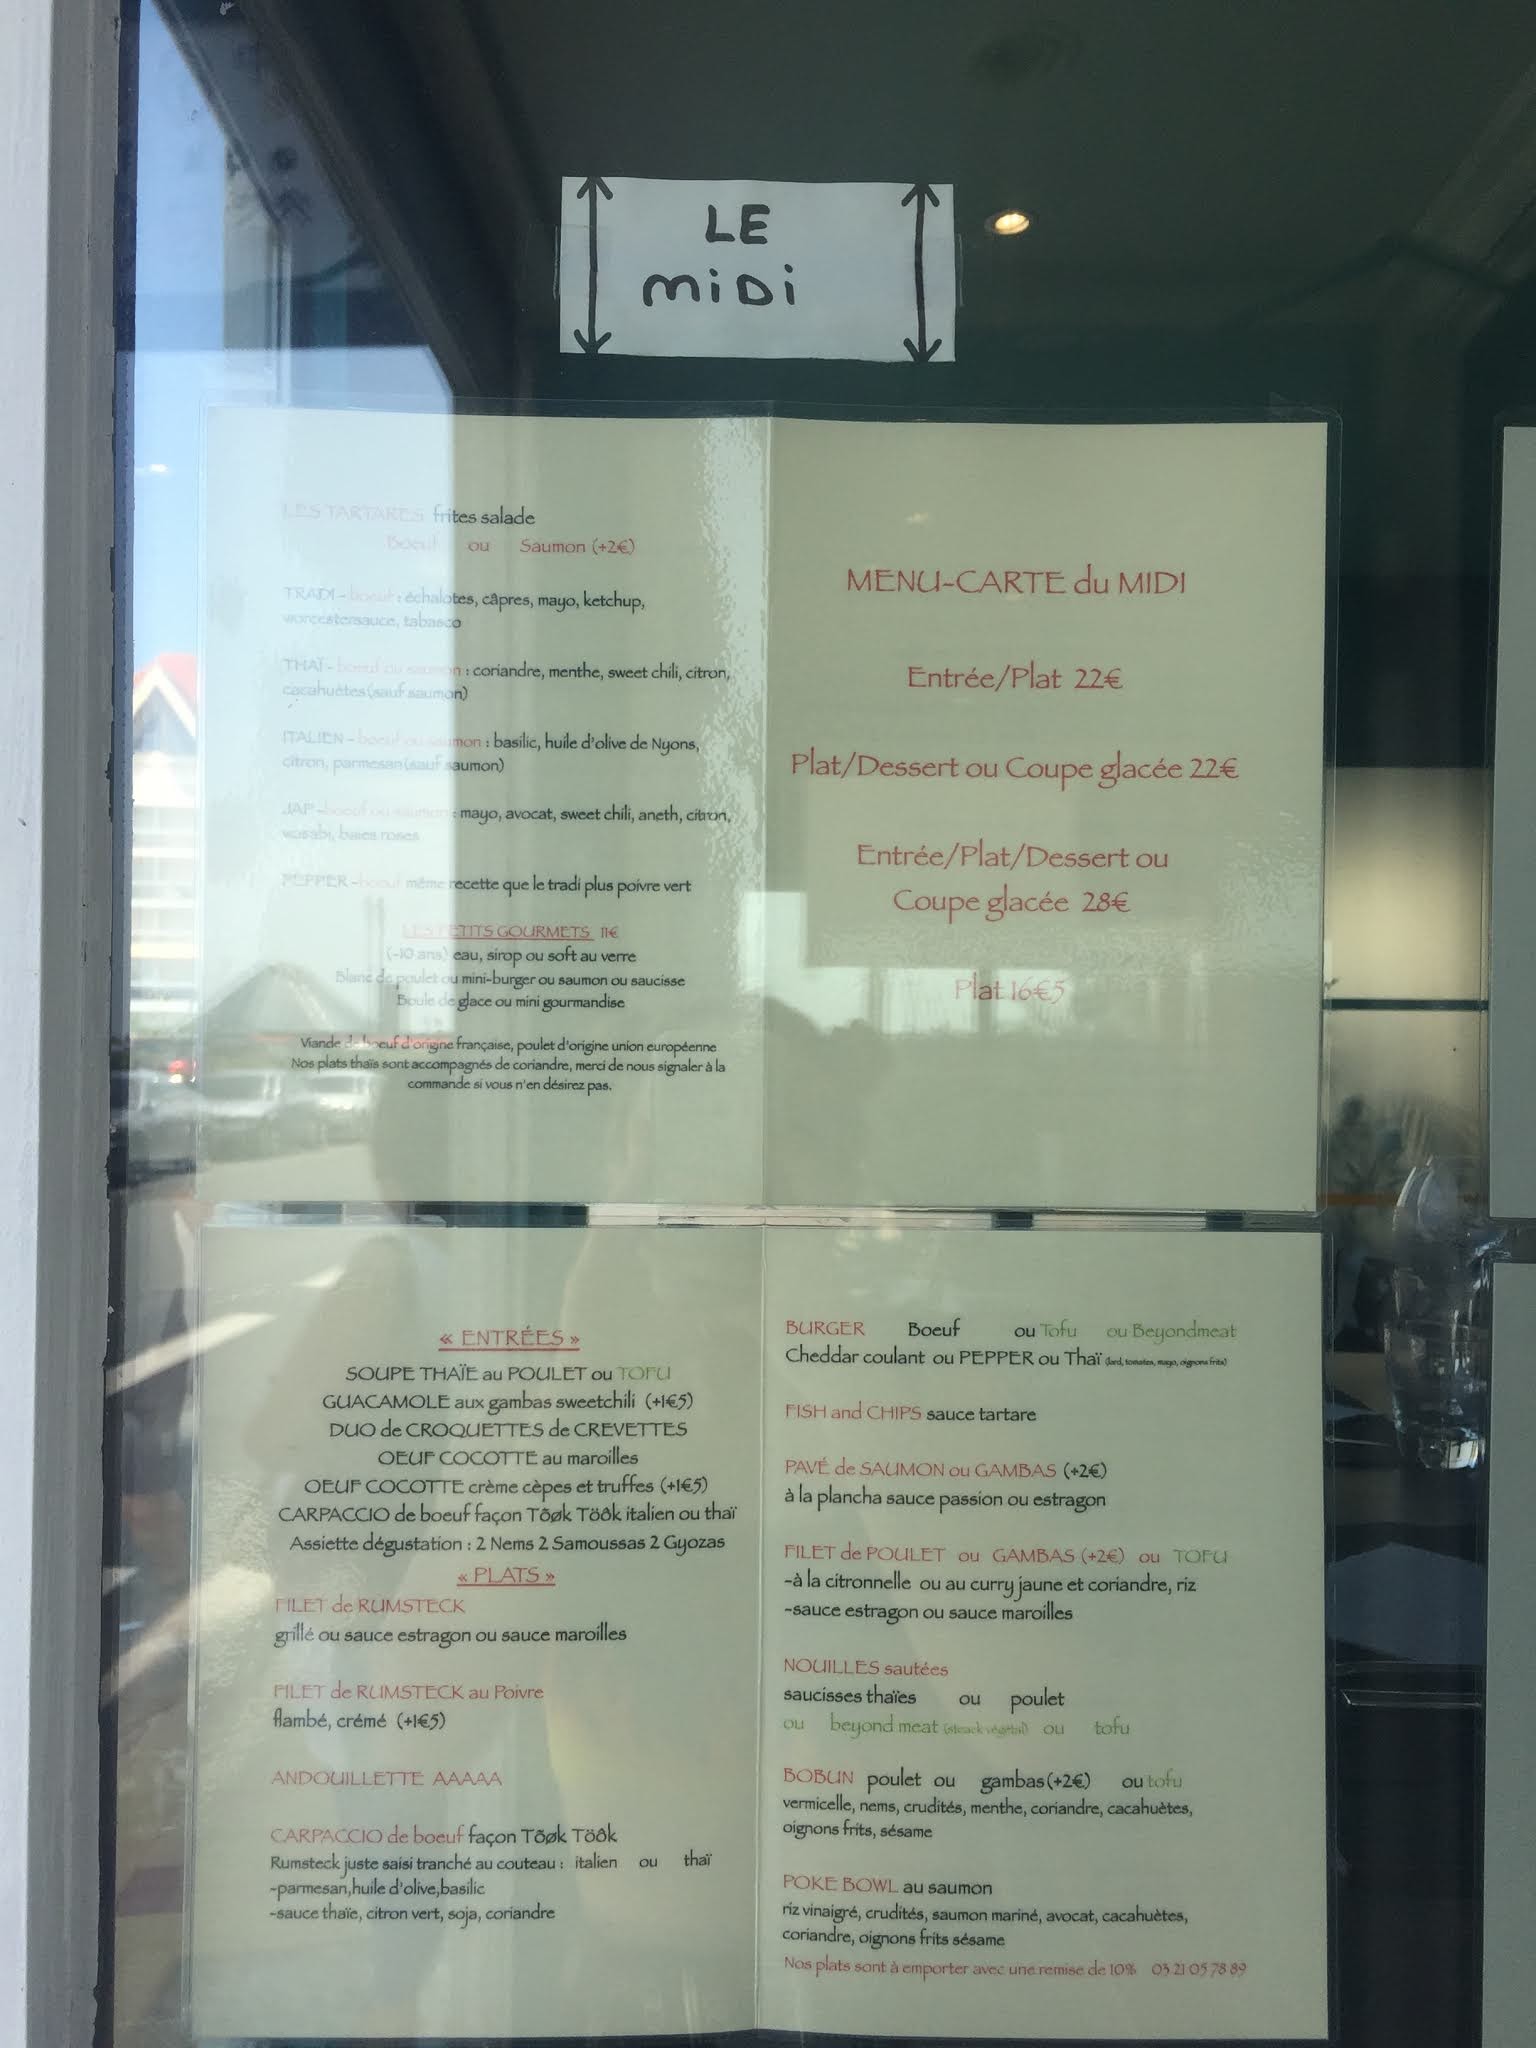 LE
MiDi
LES TARTARES frites salade
Boeuf ou Saumon (+2€)
TRADI - boeuf : échalotes, câpres, mayo, ketchup,
worcestersauce, tabasco
THAÏ - boeuf ou saumon : coriandre, menthe, sweet chili, citron,
cacahuètes(sauf saumon)
ITALIEN - boeuf ou saumon : basilic, huile d'olive de Nyons,
citron, parmesan(sauf saumon)
JAP -boeuf ou saumon : mayo, avocat, sweet chili, aneth, citron,
wasabi, baies roses
PEPPER -boeuf même recette que le tradi plus poivre vert
LES PETITS GOURMETS 11€
(-10 ans) eau, sirop ou soft au verre
Blanc de poulet ou mini-burger ou saumon ou saucisse
Boule de glace ou mini gourmandise
Viande de boeuf d'origine française, poulet d'origine union européenne
Nos plats thaïs sont accompagnés de coriandre, merci de nous signaler à la
commande si vous n'en désirez pas.
MENU-CARTE du MIDI
Entrée/Plat 22€
Plat/Dessert ou Coupe glacée 22€
Entrée/Plat/Dessert ou
Coupe glacée 28€
Plat 16€5
« ENTRÉES »
SOUPE THAÏE au POULET ou TOFU
GUACAMOLE aux gambas sweetchili (+1€5)
DUO de CROQUETTES de CREVETTES
OEUF COCOTTE au maroilles
OEUF COCOTTE crème cèpes et truffes (+1€5)
CARPACCIO de boeuf façon Tõøk Töôk italien ou thaï
Assiette dégustation : 2 Nems 2 Samoussas 2 Gyozas
« PLATS »
FILET de RUMSTECK
grillé ou sauce estragon ou sauce maroilles
FILET de RUMSTECK au Poivre
flambé, crémé (+1€5)
ANDOUILLETTE AAAAA
CARPACCIO de boeuf façon Tõøk Töôk
Rumsteck juste saisi tranché au couteau : italien ou thaï
-parmesan,huile d'olive,basilic
-sauce thaïe, citron vert, soja, coriandre
BURGER Boeuf ou Tofu ou Beyondmeat
Cheddar coulant ou PEPPER ou Thaï (lard, tomates, mayo, oignons frits)
FISH and CHIPS sauce tartare
PAVÉ de SAUMON ou GAMBAS (+2€)
à la plancha sauce passion ou estragon
FILET de POULET ou GAMBAS (+2€) ou TOFU
-à la citronnelle ou au curry jaune et coriandre, riz
-sauce estragon ou sauce maroilles
NOUILLES sautées
saucisses thaïes ou poulet
ou beyond meat (steack végétal) ou tofu
BOBUN poulet ou gambas(+2€) ou tofu
vermicelle, nems, crudités, menthe, coriandre, cacahuètes,
oignons frits, sésame
POKE BOWL au saumon
riz vinaigré, crudités, saumon mariné, avocat, cacahuètes,
coriandre, oignons frits sésame
Nos plats sont à emporter avec une remise de 10% 03 21 05 78 89